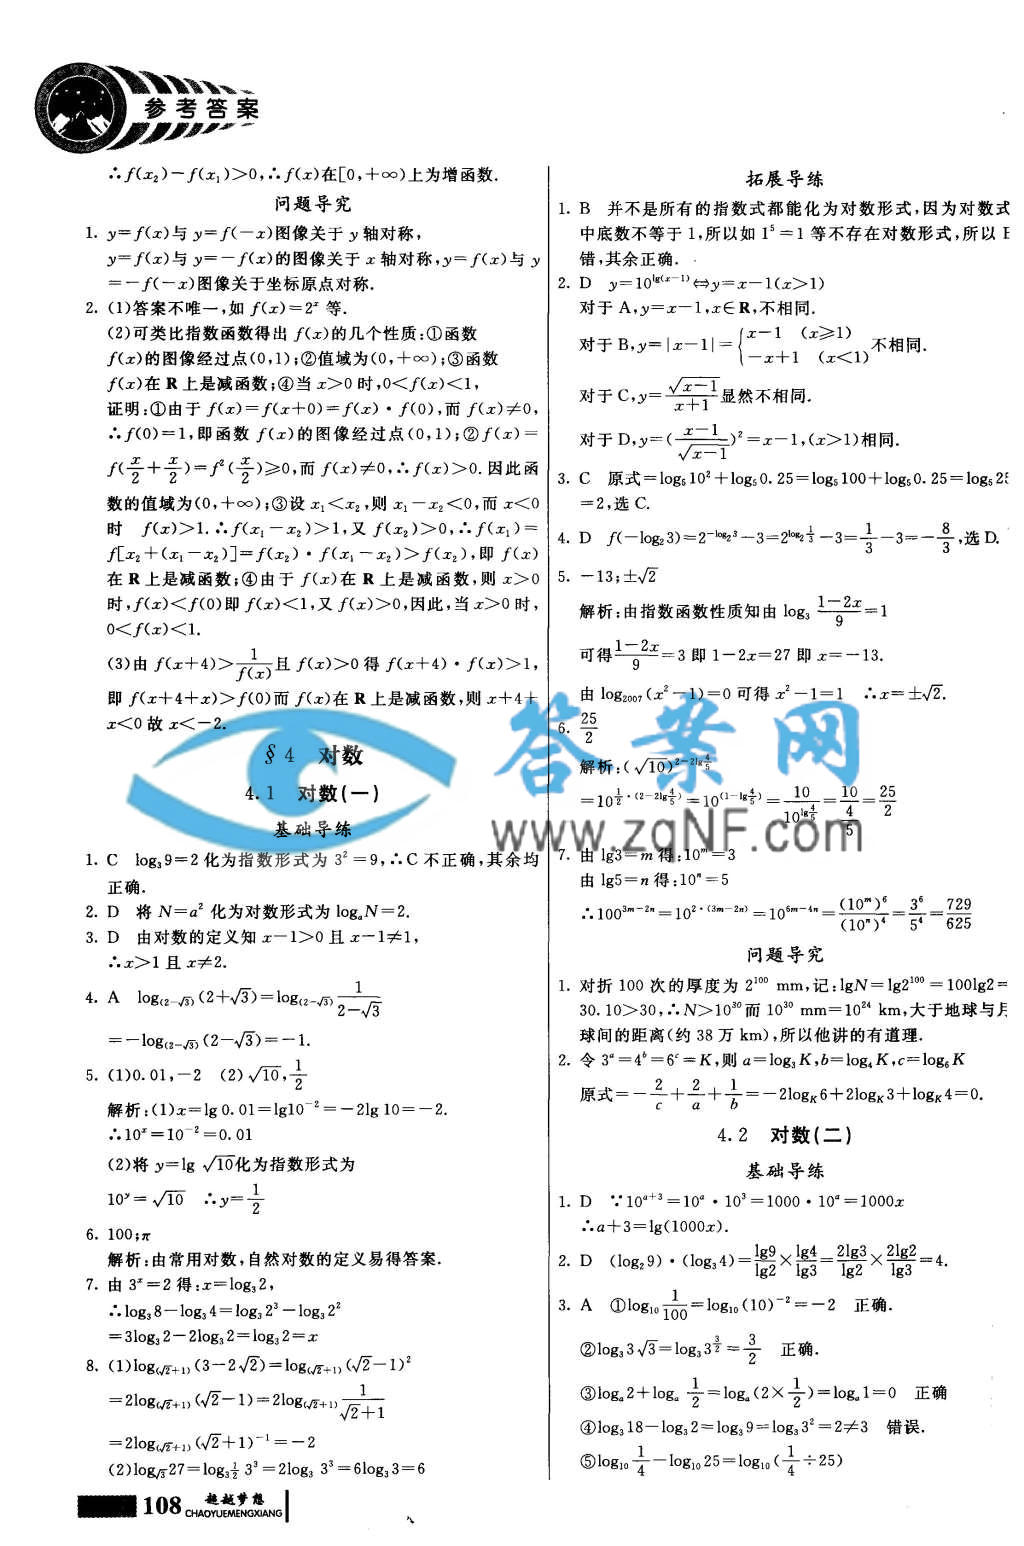 参考答案
∴f(x₂)－f(x₁)>0,∴f(x)在[0,＋∞)上为增函数.
问题导究
1. y=f(x)与 y=f(－x)图像关于 y 轴对称,
y=f(x)与 y=－f(x)的图像关于 x 轴对称,y=f(x)与 y
=－f(－x)图像关于坐标原点对称.
2. (1)答案不唯一,如 f(x)=2ˣ 等.
(2)可类比指数函数得出 f(x)的几个性质:①函数
f(x)的图像经过点(0,1);②值域为(0,＋∞);③函数
f(x)在 R 上是减函数;④当 x>0 时,0<f(x)<1,
证明:①由于 f(x)=f(x+0)=f(x)·f(0),而 f(x)≠0,
∴f(0)=1,即函数 f(x)的图像经过点(0,1);②f(x)=
f(x/2+x/2)=f²(x/2)≥0,而 f(x)≠0,∴f(x)>0.因此函
数的值域为(0,+∞);③设 x₁<x₂,则 x₁－x₂<0,而 x<0
时 f(x)>1.∴f(x₁－x₂)>1,又 f(x₂)>0,∴f(x₁)=
f[x₂+(x₁－x₂)]=f(x₂)·f(x₁－x₂)>f(x₂),即 f(x)
在 R 上是减函数;④由于 f(x)在 R 上是减函数,则 x>0
时,f(x)<f(0)即 f(x)<1,又 f(x)>0,因此,当 x>0 时,
0<f(x)<1.
(3)由 f(x+4)>1/f(x)且 f(x)>0 得 f(x+4)·f(x)>1,
即 f(x+4+x)>f(0)而 f(x)在 R 上是减函数,则 x+4+
x<0 故 x<－2.
§4 对数
4.1 对数(一)
基础导练
1. C log₃9=2 化为指数形式为 3²=9,∴C 不正确,其余均
正确.
2. D 将 N=a² 化为对数形式为 logₐN=2.
3. D 由对数的定义知 x－1>0 且 x－1≠1,
∴x>1 且 x≠2.
4. A log₍₂₋√₃₎(2+√3)=log₍₂₋√₃₎ 1/(2－√3)
=－log₍₂₋√₃₎(2－√3)=－1.
5. (1)0.01,－2 (2)√10,1/2
解析:(1)x=lg 0.01=lg10⁻²=－2lg 10=－2.
∴10ˣ=10⁻²=0.01
(2)将 y=lg √10化为指数形式为
10ʸ=√10 ∴y=1/2
6. 100;π
解析:由常用对数,自然对数的定义易得答案.
7. 由 3ˣ=2 得:x=log₃2,
∴log₃8－log₃4=log₃2³－log₃2²
=3log₃2－2log₃2=log₃2=x
8. (1)log₍√₂₊₁₎(3－2√2)=log₍√₂₊₁₎(√2－1)²
=2log₍√₂₊₁₎(√2－1)=2log₍√₂₊₁₎ 1/(√2+1)
=2log₍√₂₊₁₎(√2+1)⁻¹=－2
(2)log_√3 27=log_(3^(1/2)) 3³=2log₃ 3³=6log₃3=6
拓展导练
1. B 并不是所有的指数式都能化为对数形式,因为对数式
中底数不等于 1,所以如 1⁵=1 等不存在对数形式,所以 B
错,其余正确.
2. D y=10^(lg(x－1))⇔y=x－1(x>1)
对于 A,y=x－1,x∈R,不相同.
对于 B,y=|x－1|={x－1 (x≥1) －x+1 (x<1) 不相同.
对于 C,y=√(x－1)/(x+1)显然不相同.
对于 D,y=((x－1)/√(x－1))²=x－1,(x>1)相同.
3. C 原式=log₅10²+log₅0.25=log₅100+log₅0.25=log₅25
=2,选 C.
4. D f(－log₂3)=2^(－log₂3)－3=2^(log₂1/3)－3=1/3－3=－8/3,选 D.
5. －13;±√2
解析:由指数函数性质知由 log₃ (1－2x)/9=1
可得(1－2x)/9=3 即 1－2x=27 即 x=－13.
由 log₂₀₀₇(x²－1)=0 可得 x²－1=1 ∴x=±√2.
6. 25/2
解析:(√10)^(2－2lg4/5)
=10^(1/2·(2－2lg4/5))=10^(1－lg4/5)=10/10^(lg4/5)=10/(4/5)=25/2
7. 由 lg3=m 得:10ᵐ=3
由 lg5=n 得:10ⁿ=5
∴100^(3m－2n)=10^(2·(3m－2n))=10^(6m－4n)=(10ᵐ)⁶/(10ⁿ)⁴=3⁶/5⁴=729/625
问题导究
1. 对折 100 次的厚度为 2¹⁰⁰ mm,记:lgN=lg2¹⁰⁰=100lg2=
30.10>30,∴N>10³⁰而 10³⁰ mm=10²⁴ km,大于地球与月
球间的距离(约 38 万 km),所以他讲的有道理.
2. 令 3ᵃ=4ᵇ=6ᶜ=K,则 a=log₃K,b=log₄K,c=log₆K
原式=－2/c+2/a+1/b=－2log_K 6+2log_K 3+log_K 4=0.
4.2 对数(二)
基础导练
1. D ∵10ᵃ⁺³=10ᵃ·10³=1000·10ᵃ=1000x
∴a+3=lg(1000x).
2. D (log₂9)·(log₃4)=lg9/lg2×lg4/lg3=2lg3/lg2×2lg2/lg3=4.
3. A ①log₁₀ 1/100=log₁₀(10)⁻²=－2 正确.
②log₃3√3=log₃3^(3/2)=3/2 正确.
③logₐ2+logₐ 1/2=logₐ(2×1/2)=logₐ1=0 正确
④log₃18－log₃2=log₃9=log₃3²=2≠3 错误.
⑤log₁₀ 1/4－log₁₀25=log₁₀(1/4÷25)
答案网
www.zqNF.com
108 超越梦想
CHAOYUEMENGXIANG